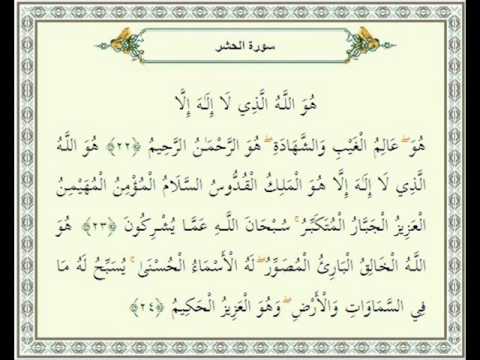 سورة الحشر
هُوَ اللَّهُ الَّذِي لَا إِلَٰهَ إِلَّا
هُوَ ۖ عَالِمُ الْغَيْبِ وَالشَّهَادَةِ ۖ هُوَ الرَّحْمَٰنُ الرَّحِيمُ ﴿٢٢﴾ هُوَ اللَّهُ
الَّذِي لَا إِلَٰهَ إِلَّا هُوَ الْمَلِكُ الْقُدُّوسُ السَّلَامُ الْمُؤْمِنُ الْمُهَيْمِنُ
الْعَزِيزُ الْجَبَّارُ الْمُتَكَبِّرُ ۚ سُبْحَانَ اللَّهِ عَمَّا يُشْرِكُونَ ﴿٢٣﴾ هُوَ
اللَّهُ الْخَالِقُ الْبَارِئُ الْمُصَوِّرُ ۖ لَهُ الْأَسْمَاءُ الْحُسْنَىٰ ۚ يُسَبِّحُ لَهُ مَا
فِي السَّمَاوَاتِ وَالْأَرْضِ ۖ وَهُوَ الْعَزِيزُ الْحَكِيمُ ﴿٢٤﴾